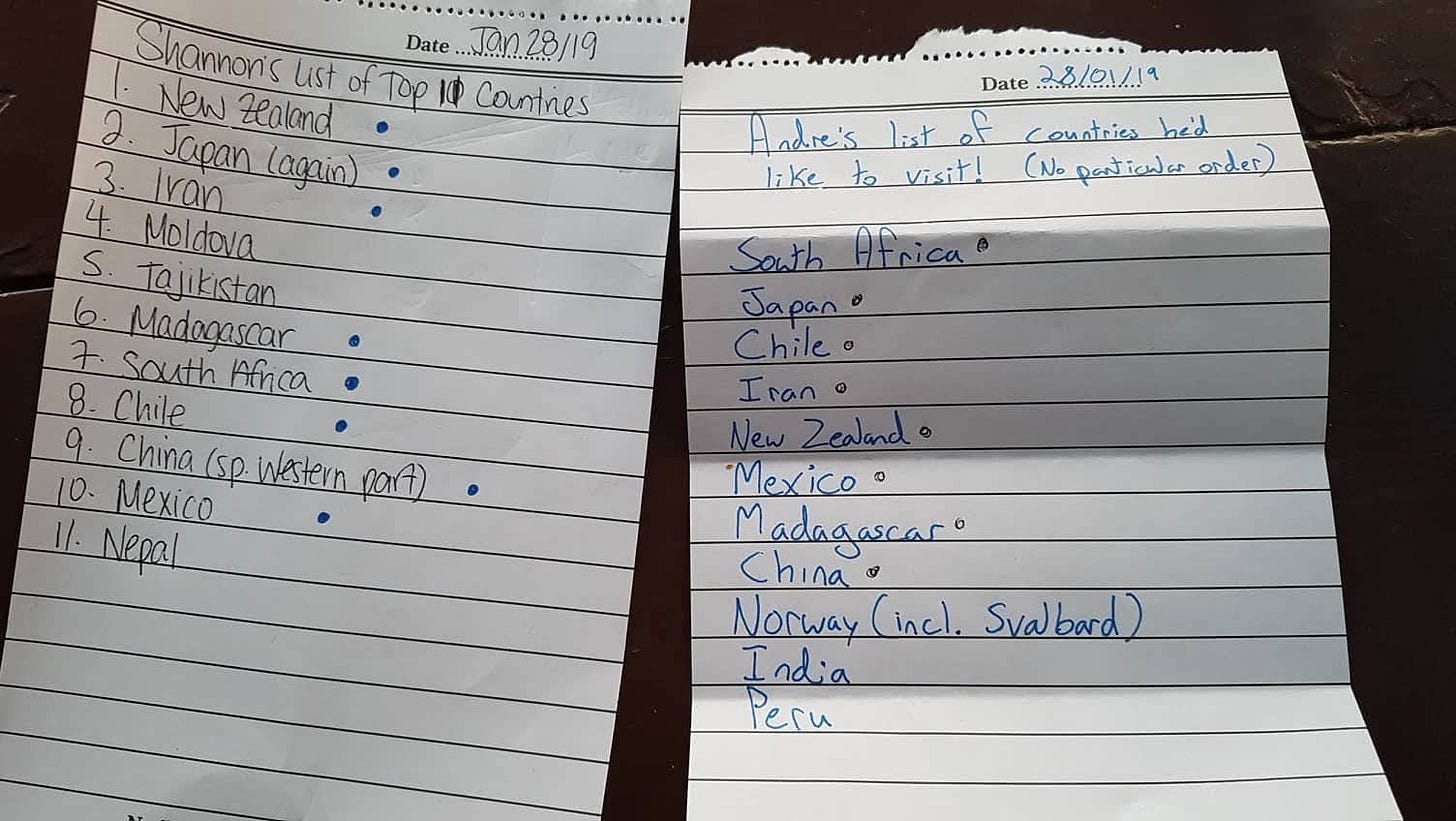 Date ...Jan 28/19
Shannon's List of Top 11 Countries
1. New Zealand
2. Japan (again)
3. Iran
4. Moldova
5. Tajikistan
6. Madagascar
7. South Africa
8. Chile
9. China (sp. Western part)
10. Mexico
11. Nepal
Date 28/01/19
Andre's list of countries he'd
like to visit! (No particular order)
South Africa
Japan
Chile
Iran
New Zealand
Mexico
Madagascar
China
Norway (incl. Svalbard)
India
Peru